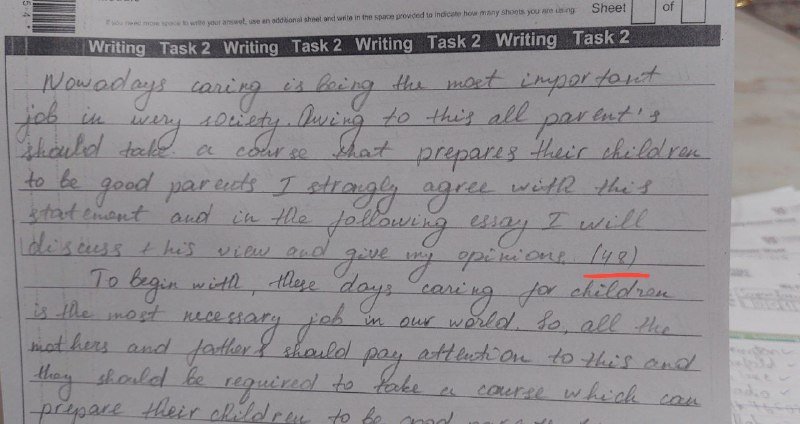 If you need more space to write your answer, use an additional sheet and write in the space provided to indicate how many sheets you are using: Sheet of
Writing Task 2 Writing Task 2 Writing Task 2 Writing Task 2
Nowadays caring is being the most important
job in wery society. Owing to this all parent's
should take a course that prepares their children
to be good parents I strongly agree with this
statement and in the following essay I will
discuss this view and give my opinions. (48)
To begin with, these days caring for children
is the most necessary job in our world. So, all the
mothers and fathers should pay attention to this and
they should be required to take a course which can
prepare their children to be good